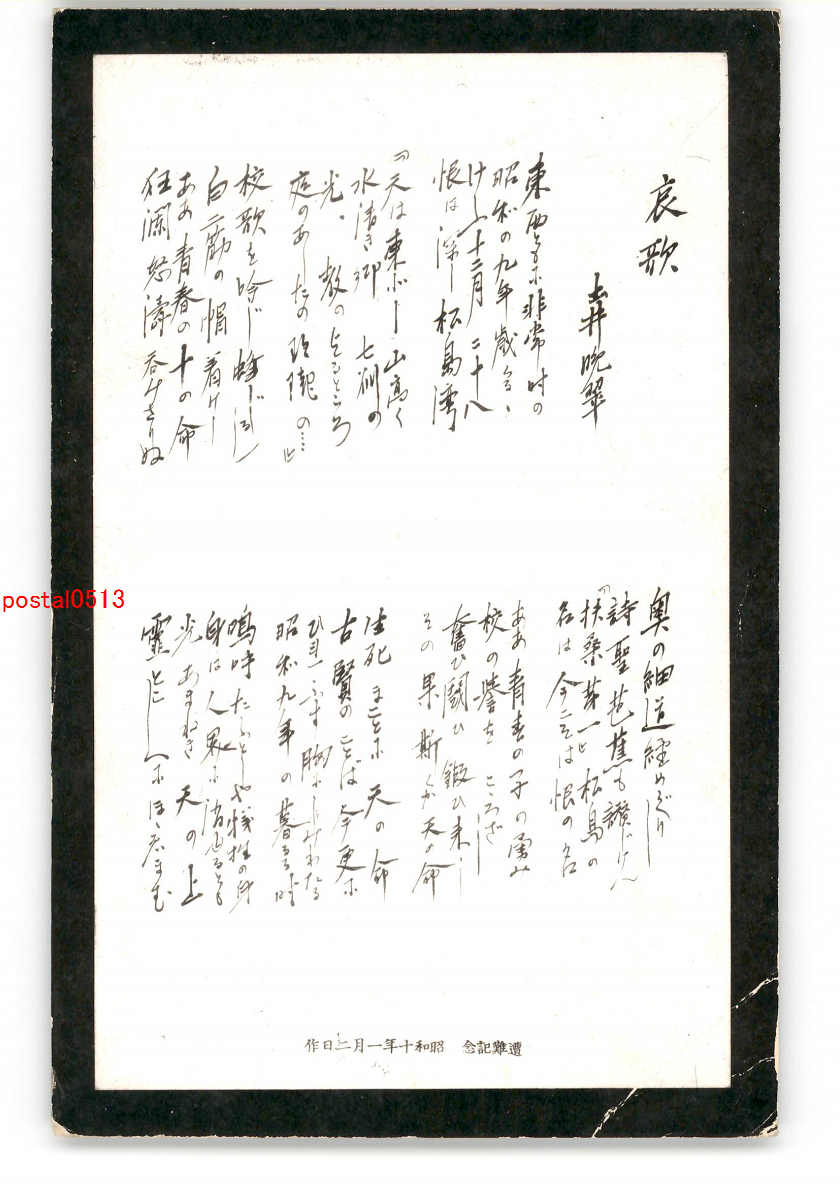 哀歌
土井晩翠
東西ともに非常時の
昭和の九年歳
十二月二十八
恨は深し松島湾
『天は東北 山高く
水清き郷 七州の
光、教の よるところ
庭のあしたの 玲瓏の…』
校歌を吟じ
白二筋の帽着けし
ああ青春の十の命
狂瀾怒濤呑みさりぬ
奥の細道経めぐりし
詩聖芭蕉も讃じけん
『扶桑第一』と松島の
名は今こそは恨の名
ああ青春の子の勇み
校の誉を こころざし
奮ひ闘ひ 鍛ひ来し
その果斯くか天の命
生死まことに 天の命
古賢のことば今更に
胸に
昭和九年の 暮るる時
嗚呼たふとしや犠牲の身
身は人界に
光あまねき 天の上
霊とこしへにほゝゑまむ
遭難記念 昭和十年一月二日作
postal0513